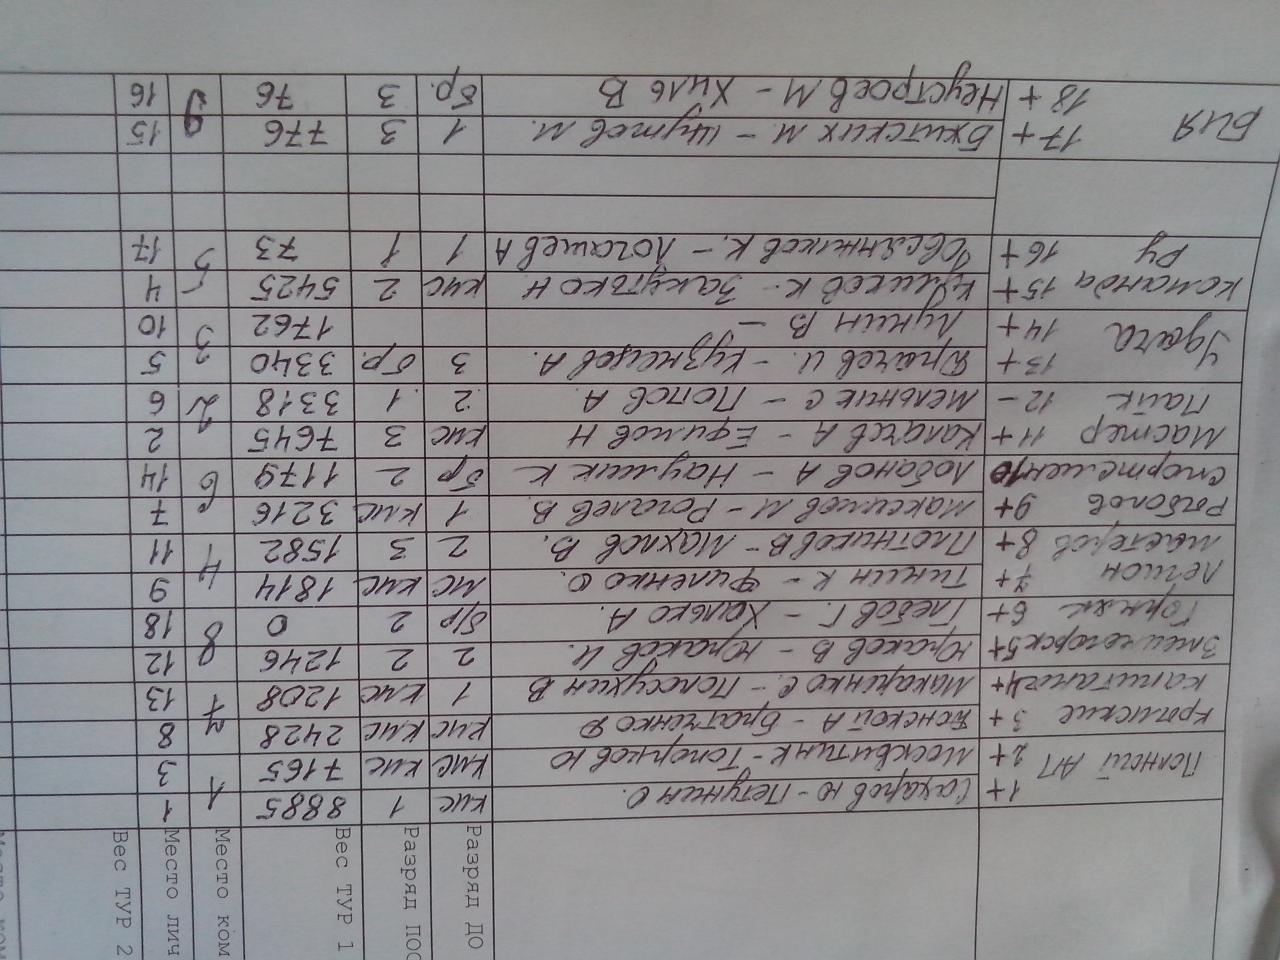 Разряд ДО
Разряд ПОС
Вес ТУР 1
Место ком
Место лич
Вес ТУР 2
Полный АП 1+ Сахаров Ю - Петунин О. кмс 1 8885 1 1
2+ Москвитин К - Топорков Ю кмс кмс 7165 3
Крымские 3+ Донской А - Братченко Д кмс кмс 2428 7 8
капитаны 4+ Макаренко С. - Полосухин В 1 кмс 1208 13
Змеиногорск 5+ Юраков В - Юраков И. 2 2 1246 8 12
Горняк 6+ Глебов Г. - Халько А. б/р 2 0 18
Легион 7+ Тинин К - Филенко О. мс кмс 1814 4 9
мастеров 8+ Плотников В - Махлов В. 2 3 1582 11
Рыболов 9+ Максимов М - Рогалев В. 1 кмс 3216 6 7
спортсмен 10 Лобанов А - Наумик К бр 2 1179 14
Мастер 11+ Калачев А - Ефимов Н кмс 3 7645 2 2
Пайк 12- Мельник С - Попов А. 2 1 3318 6
Удача 13+ Драчев И. - Кузнецов А. 3 бр. 3340 3 5
14+ Лунин В - 1762 10
команда 15+ Куликов К - Закутько Н. кмс 2 5425 5 4
РУ 16+ Овсянников К. - Логашев А 1 1 73 17
БИЯ 17+ Бжитских М. - Шутов М. 1 3 776 9 15
18+ Неустроев М - Хиль В бр. 3 76 16